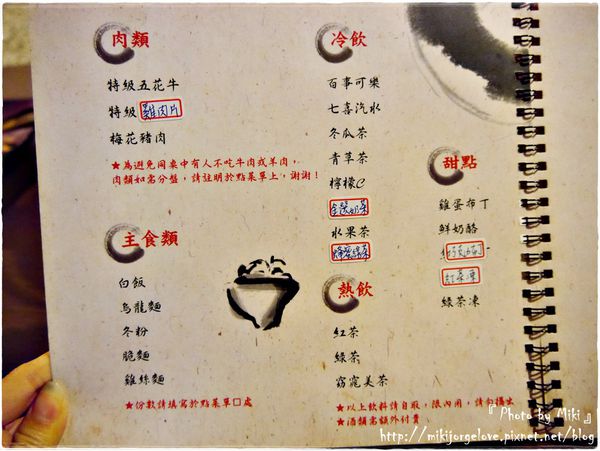 肉類
特級五花牛
特級雞肉片
梅花豬肉
★為避免同桌中有人不吃牛肉或羊肉，
肉類如需分盤，請註明於點菜單上，謝謝！
主食類
白飯
烏龍麵
冬粉
脆麵
雞絲麵
★份數請填寫於點菜單□處
冷飲
百事可樂
七喜汽水
冬瓜茶
青草茶
檸檬C
水果茶
熱飲
紅茶
綠茶
窈窕美茶
★以上飲料請自取，限內用，請勿攜出
★酒類需額外付費
甜點
雞蛋布丁
鮮奶酪
紅茶凍
綠茶凍
『Photo by Miki』
http://mikijorgelove.pixnet.net/blog